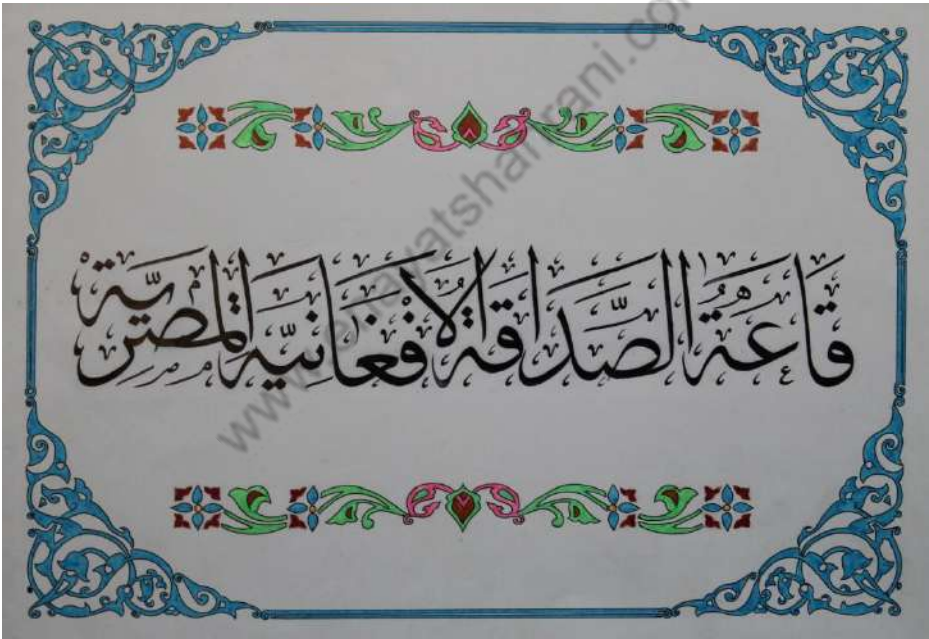 قاعة الصداقة الافغانية المصرية
www.enayatshahrani.com